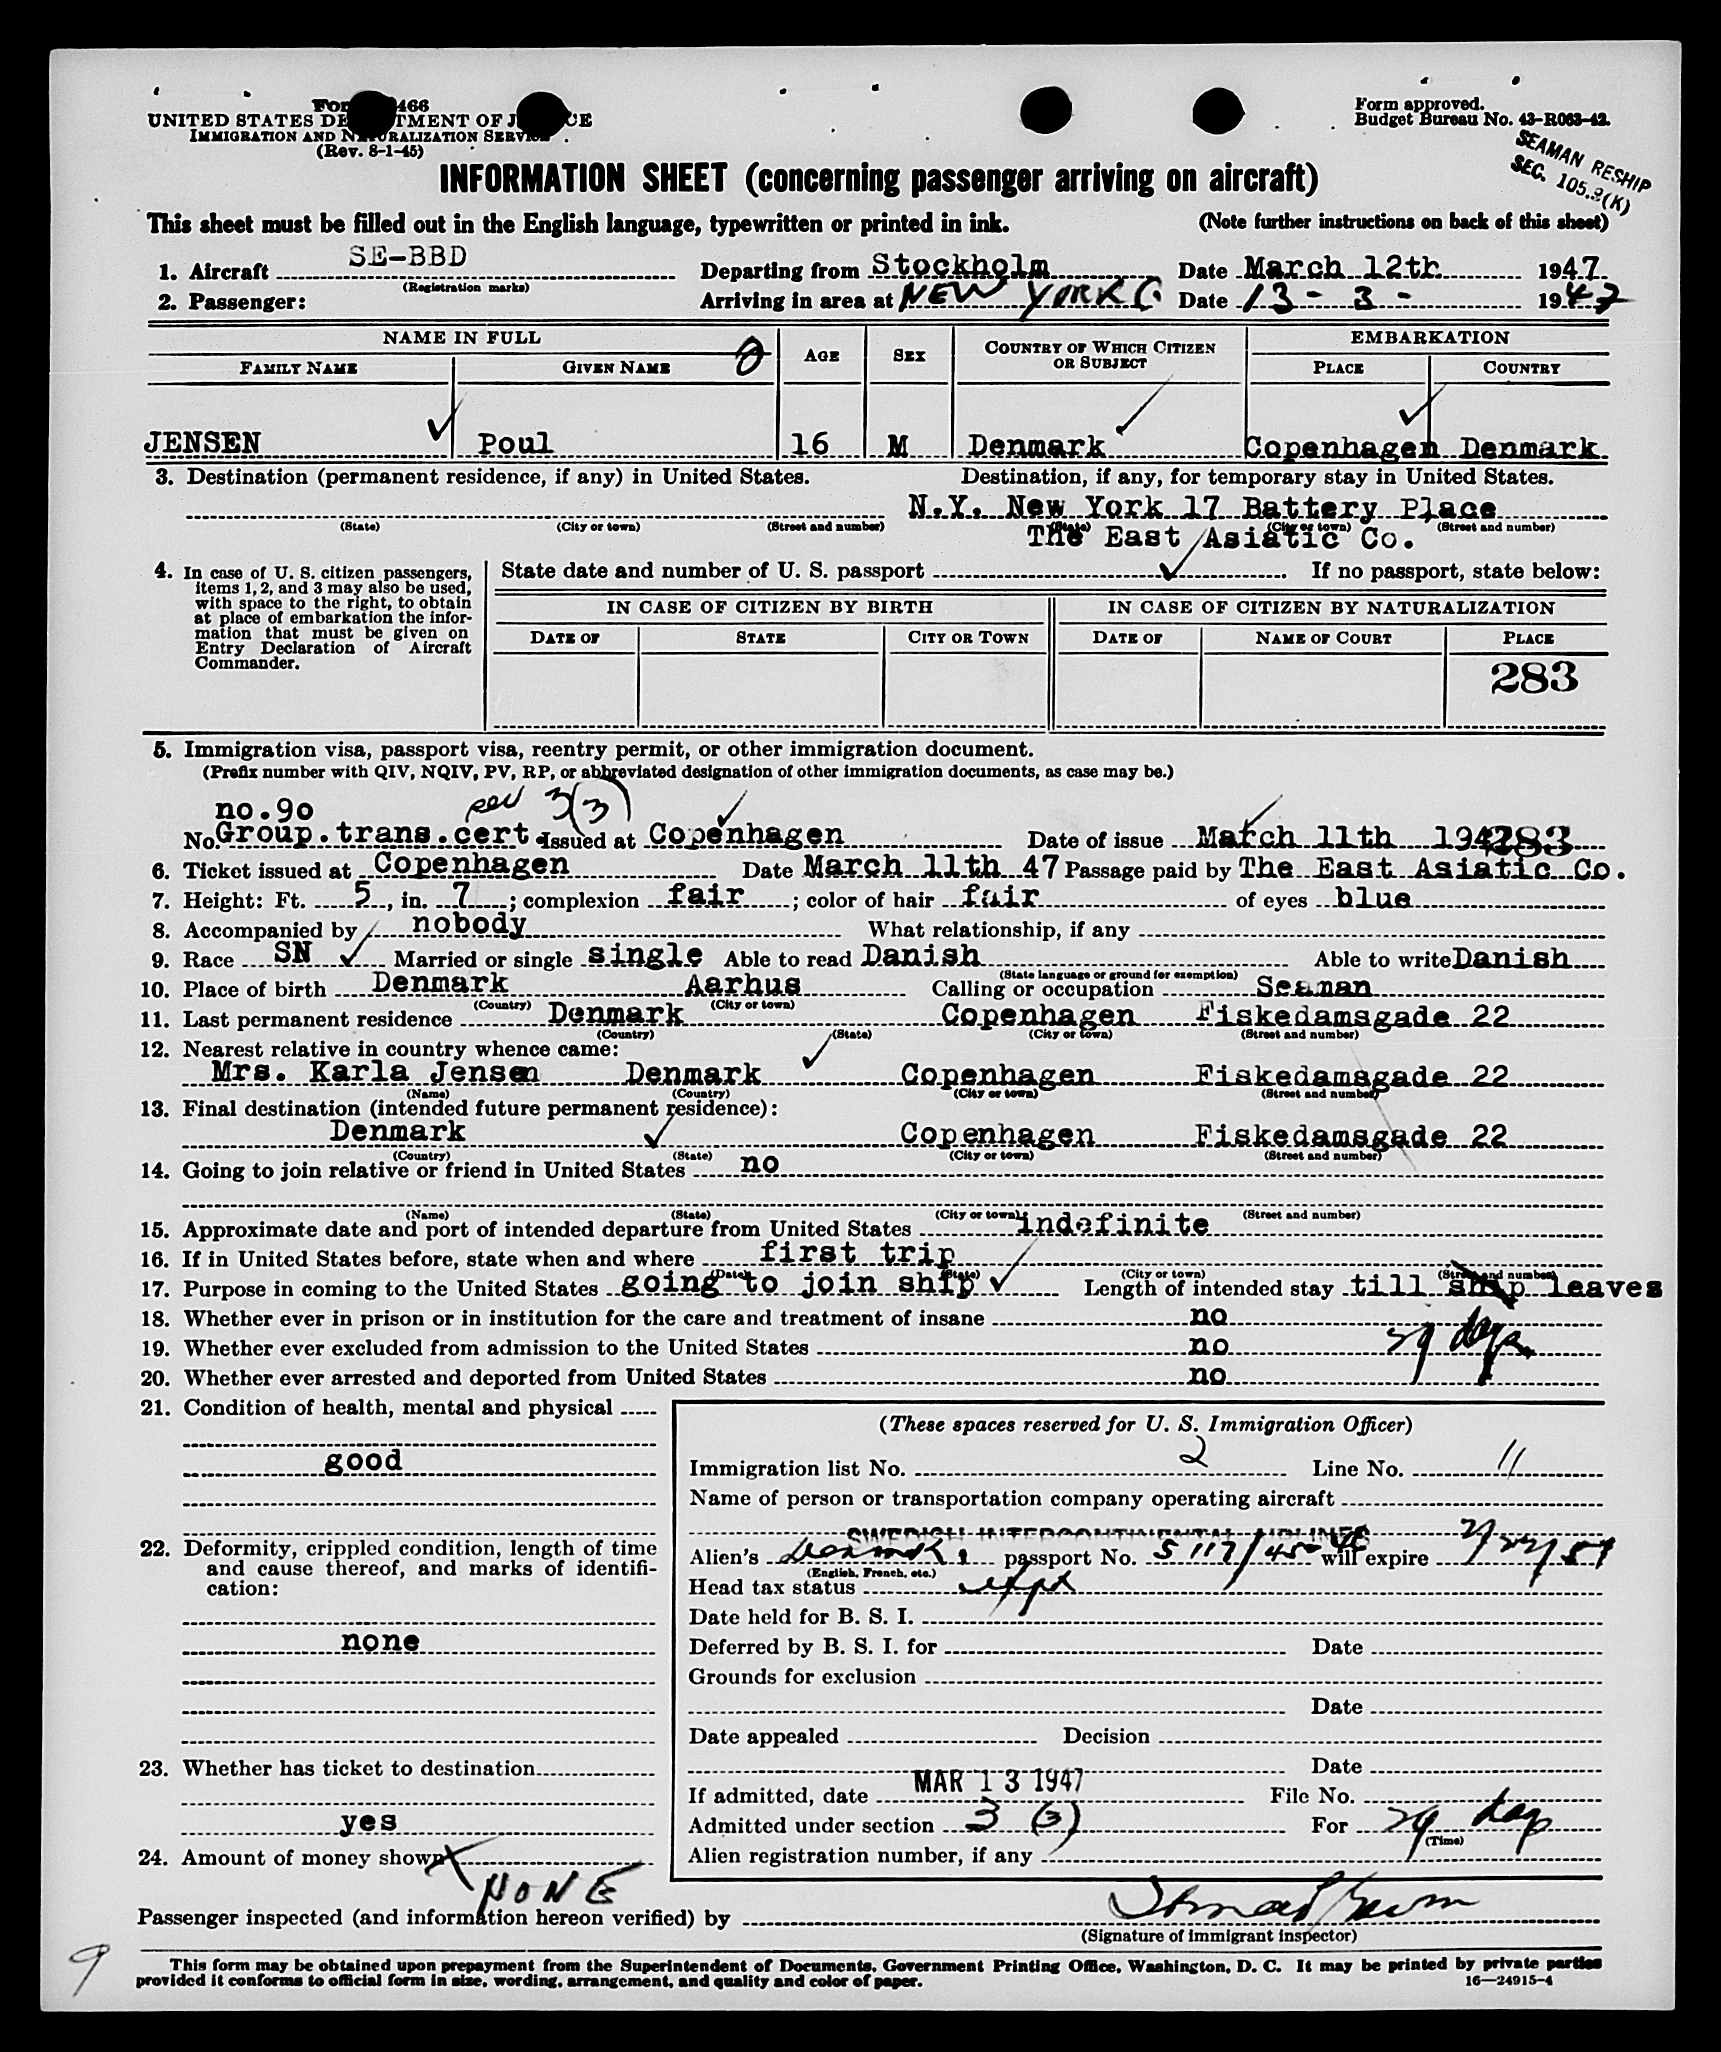 Form I-466
UNITED STATES DEPARTMENT OF JUSTICE
IMMIGRATION AND NATURALIZATION SERVICE
(Rev. 8-1-45)
Form approved.
Budget Bureau No. 43-R063-42.
SEAMAN RESHIP
SEC. 105.3(K)
INFORMATION SHEET (concerning passenger arriving on aircraft)
This sheet must be filled out in the English language, typewritten or printed in ink. (Note further instructions on back of this sheet)
1. Aircraft SE-BBD Departing from Stockholm Date March 12th 1947
(Registration marks)
2. Passenger: Arriving in area at NEW YORK Date 13 - 3 - 1947
NAME IN FULL AGE SEX COUNTRY OF WHICH CITIZEN OR SUBJECT EMBARKATION
FAMILY NAME GIVEN NAME PLACE COUNTRY
JENSEN Poul 16 M Denmark Copenhagen Denmark
3. Destination (permanent residence, if any) in United States. Destination, if any, for temporary stay in United States.
N.Y. New York 17 Battery Place
(State) (City or town) (Street and number) (State) (City or town) (Street and number)
The East Asiatic Co.
4. In case of U. S. citizen passengers, items 1, 2, and 3 may also be used, with space to the right, to obtain at place of embarkation the information that must be given on Entry Declaration of Aircraft Commander.
State date and number of U. S. passport If no passport, state below:
IN CASE OF CITIZEN BY BIRTH IN CASE OF CITIZEN BY NATURALIZATION
DATE OF STATE CITY OR TOWN DATE OF NAME OF COURT PLACE
283
5. Immigration visa, passport visa, reentry permit, or other immigration document.
(Prefix number with QIV, NQIV, PV, RP, or abbreviated designation of other immigration documents, as case may be.)
no.9o 3(3)
No. Group.trans.cert. Issued at Copenhagen Date of issue March 11th 1947 283
6. Ticket issued at Copenhagen Date March 11th 47 Passage paid by The East Asiatic Co.
7. Height: Ft. 5, in. 7; complexion fair; color of hair fair of eyes blue
8. Accompanied by nobody What relationship, if any
9. Race SN Married or single single Able to read Danish Able to write Danish
(State language or ground for exemption)
10. Place of birth Denmark Aarhus Calling or occupation Seaman
(Country) (City or town)
11. Last permanent residence Denmark Copenhagen Fiskedamsgade 22
(Country) (State) (City or town) (Street and number)
12. Nearest relative in country whence came:
Mrs. Karla Jensen Denmark Copenhagen Fiskedamsgade 22
(Name) (Country) (City or town) (Street and number)
13. Final destination (intended future permanent residence):
Denmark Copenhagen Fiskedamsgade 22
(Country) (State) (City or town) (Street and number)
14. Going to join relative or friend in United States no
(Name) (State) (City or town) (Street and number)
15. Approximate date and port of intended departure from United States indefinite
16. If in United States before, state when and where first trip
(Date) (State) (City or town) (Street and number)
17. Purpose in coming to the United States going to join ship Length of intended stay till ship leaves
29 days
18. Whether ever in prison or in institution for the care and treatment of insane no
19. Whether ever excluded from admission to the United States no
20. Whether ever arrested and deported from United States no
21. Condition of health, mental and physical
good
22. Deformity, crippled condition, length of time and cause thereof, and marks of identification:
none
23. Whether has ticket to destination
yes
24. Amount of money shown
NONE
(These spaces reserved for U. S. Immigration Officer)
Immigration list No. 2 Line No. 11
Name of person or transportation company operating aircraft
SWEDISH INTERCONTINENTAL AIRLINES
Alien's passport No. will expire
(English, French, etc.)
Head tax status
Date held for B. S. I.
Deferred by B. S. I. for Date
Grounds for exclusion
Date
Date appealed Decision
Date
If admitted, date MAR 13 1947 File No.
Admitted under section 3 (3) For 29 days
(Time)
Alien registration number, if any
Passenger inspected (and information hereon verified) by
(Signature of immigrant inspector)
9
This form may be obtained upon prepayment from the Superintendent of Documents, Government Printing Office, Washington, D. C. It may be printed by private parties
provided it conforms to official form in size, wording, arrangement, and quality and color of paper. 16—24915-4